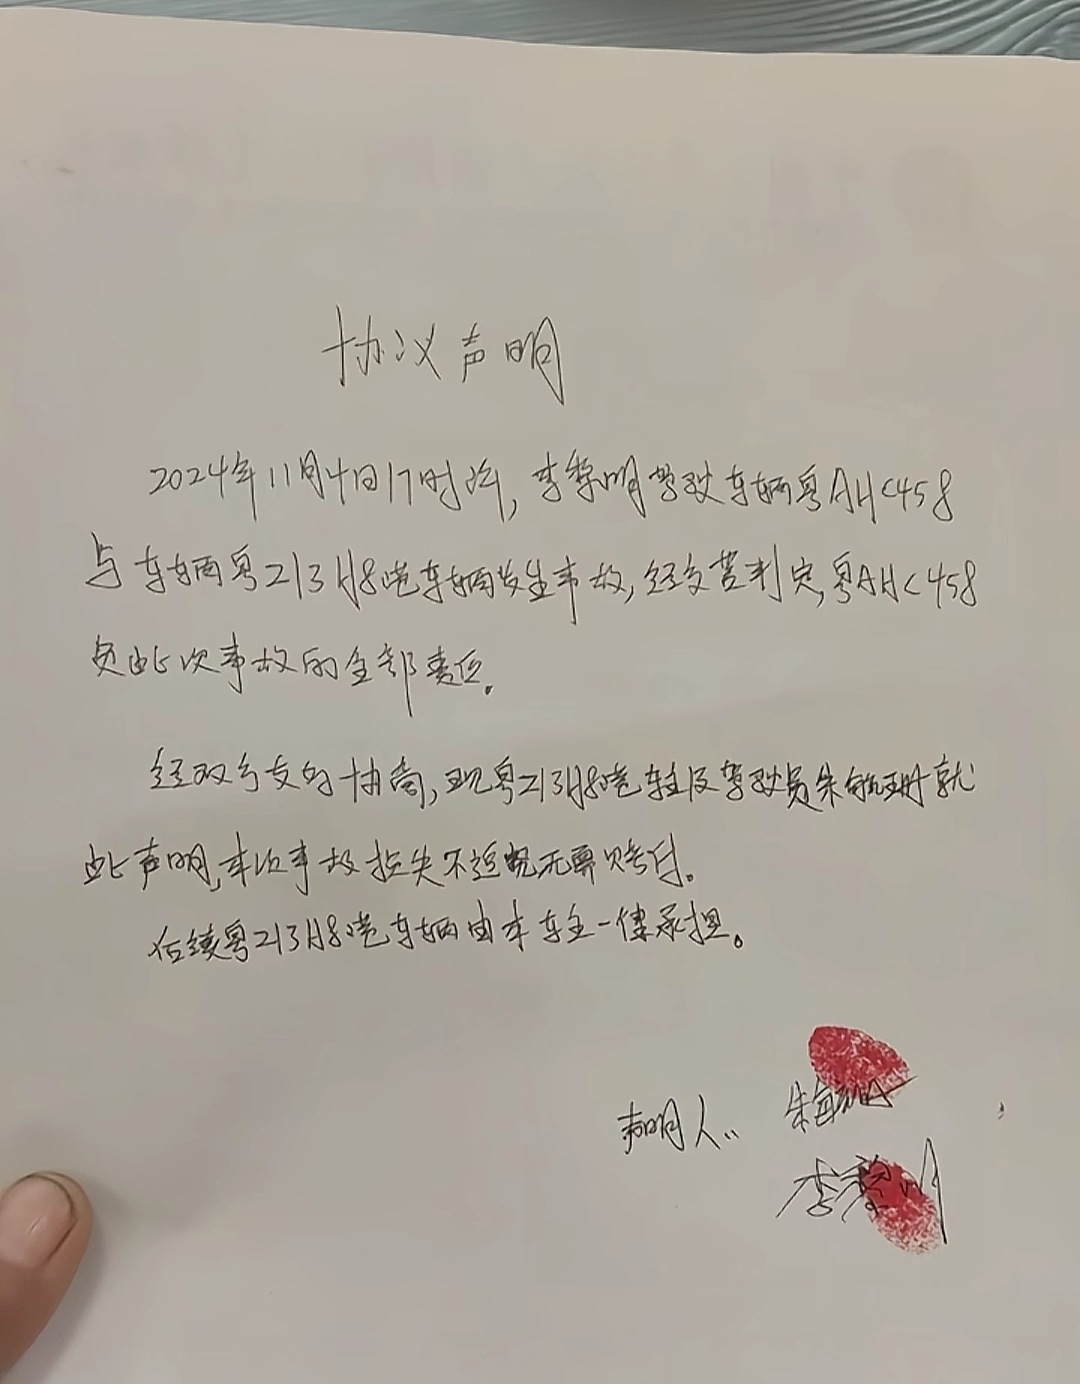 协议声明
2024年11月4日17时许,李黎明驾驶车辆粤AHC458
与车辆粤Z13H8港车辆发生事故,经交警判定,粤AHC458
负此次事故的全部责任。
经双方友的协商,现粤Z13H8港车主及驾驶员朱毓珊就
此声明,本次事故损失不追究无需赔付。
后续粤Z13H8港车辆由本车主一律承担。
声明人:
李黎明